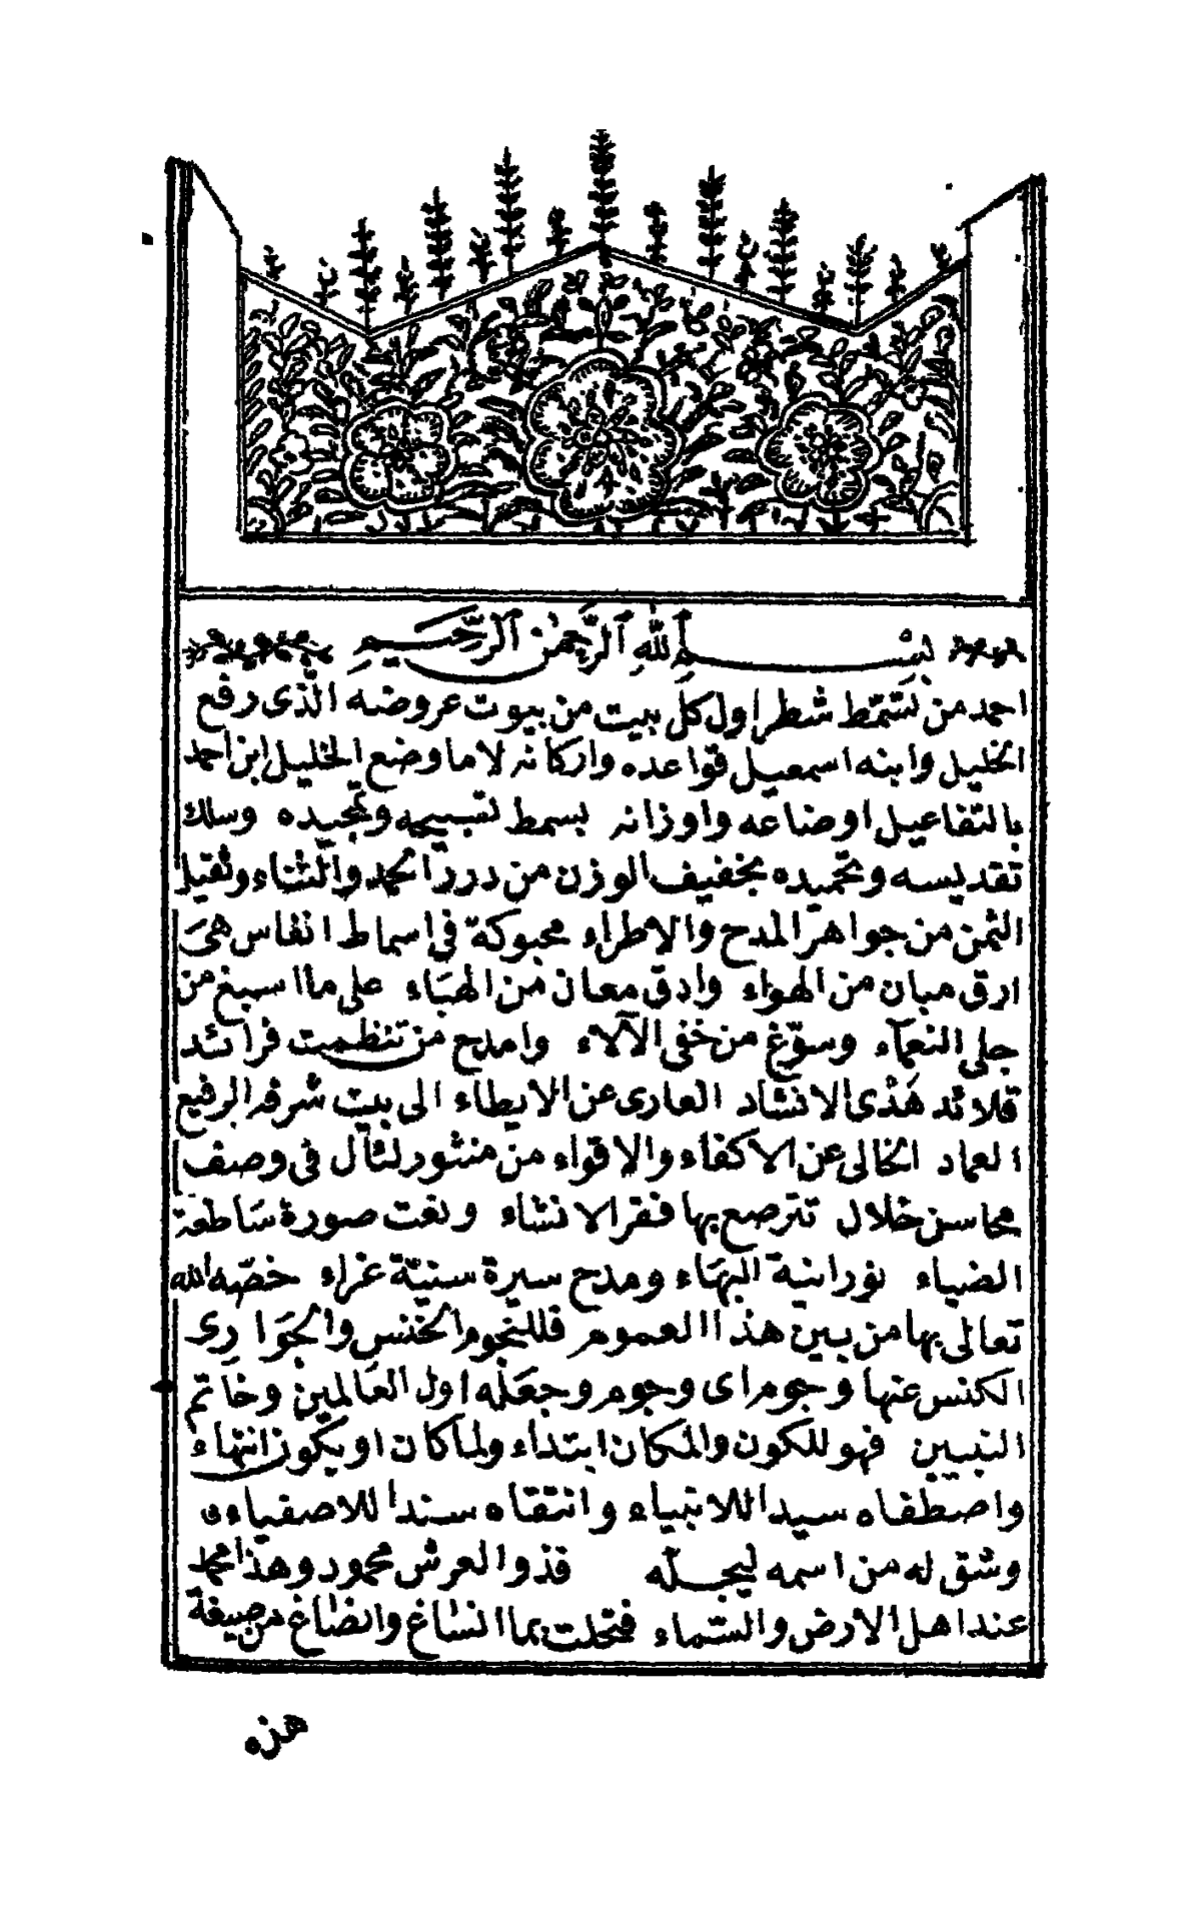 بسم الله الرحمن الرحيم
احمد من تسمّط شطر اول كلّ بيت من بيوت عروضه الّذى رفع
الخليل وابنه اسمعيل قواعده واركانه لا ما وضع الخليل ابن احمد
بالتّفاعيل اوضاعه واوزانه بسمط تسبيحه وتمجيده وسلك
تقديسه وتحميده بخفيف الوزن من درر الحمد والثّناء وثقيل
الثمن من جواهر المدح والاطراء محبوكة فى اسماط انفاس هىَ
ارق مبان من الهواء وادق معان من الهبَاء على ما اسبغ من
جلى النعماء وسوّغ من خفى الآلاء وامدح من تنظمت فرائد
قلائد هَذْى الانشاد العارى عن الايطاء الى بيت شرفه الرفيع
العماد الخالى عن الاكفاء والاقواء من منثور لئال فى وصف
محاسن خلال تترصع بها فقر الانشاء ونعت صورة سَاطعة
الضياء نورانية البهَاء ومدح سيرة سنيّة غراء خصّه الله
تعالى بها من بين هذا العموم فللنجوم الخنس والجَوارِى
الكنس عنها وجوم اى وجوم وجعَله اول العَالمين وخَاتم
النبيين فهو للكون والمكان ابتداء ولما كان او يكون انتهاء
واصطفاه سيدا للانبياء وانتقاه سندا للاصفياء
وشق له من اسمه ليجلّه فذو العرش محمود وهذا محمد
عند اهل الارض والسّماء فتحلت بما انساغ وانضاغ من صيغة
هذه